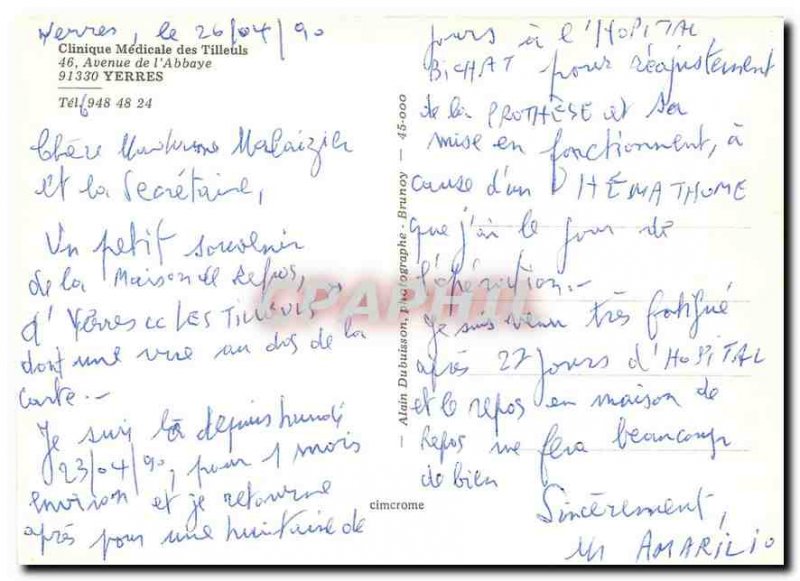 Yerres, le 26/04/90
Clinique Médicale des Tilleuls
46, Avenue de l'Abbaye
91330 YERRES
Tél. 6 948 48 24
Chère Madame Malaizier
et la Secrétaire,
Un petit souvenir
de la Maison de Repos,
d'Yerres "LES TILLEULS
dont une vue au dos de la
carte.-
Je suis là depuis lundi
23/04/90, pour 1 mois
environ et je retourne
après pour une huitaine de
jours à l'HOPITAL
BICHAT pour réajustement
de la PROTHÈSE et sa
mise en fonctionnement, à
cause d'un HÉMATHOME
que j'ai le jour de
l'opération.-
Je suis venu très fatigué
après 27 jours d'HOPITAL
et le repos en maison de
Repos me fera beaucoup
de bien
Sincèrement,
Mr AMARILIO
— Alain Dubuisson, Photographe - Brunoy — 45-000
cimcrome
CPAPHIL